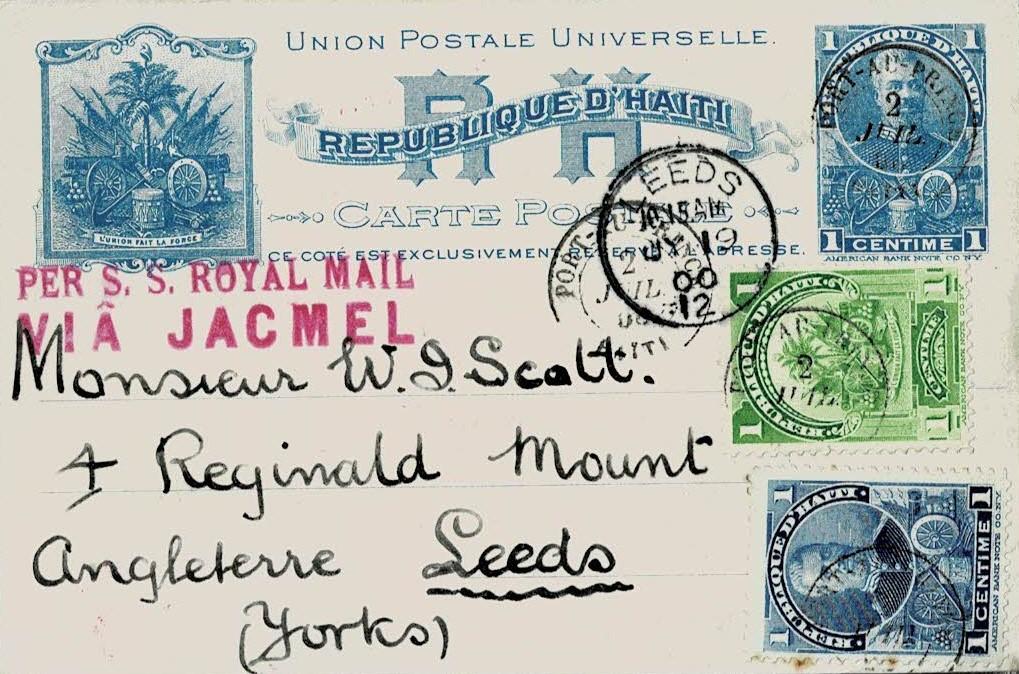 UNION POSTALE UNIVERSELLE.
RH
REPUBLIQUE D'HAITI
CARTE POSTALE
CE COTÉ EST EXCLUSIVEMENT RÉSERVÉ A L'ADRESSE.
L'UNION FAIT LA FORCE
1 1
REPUBLIQUE D'HAITI
1 CENTIME 1
AMERICAN BANK NOTE CO. N.Y.
PORT-AU-PRINCE
2
JUIL
LEEDS
10.15 AM
JY 19
00
12
PORT-AU-PRINCE
2
JUIL
HAITI
PER S. S. ROYAL MAIL
VIÂ JACMEL
Monsieur W. J. Scott.
4 Reginald Mount
Angleterre Leeds
(Yorks)
1 1
REPUBLIQUE D'HAITI
1 CENTIME 1
AMERICAN BANK NOTE CO. N.Y.
2
JUIL
1 1
REPUBLIQUE D'HAITI
1 CENTIME 1
AMERICAN BANK NOTE CO. N.Y.